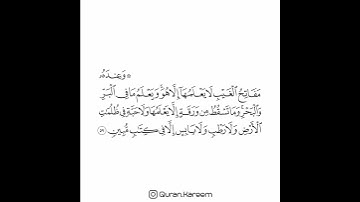 ۞ وَعِندَهُۥ
مَفَاتِحُ ٱلْغَيْبِ لَا يَعْلَمُهَآ إِلَّا هُوَ ۚ وَيَعْلَمُ مَا فِى ٱلْبَرِّ
وَٱلْبَحْرِ ۚ وَمَا تَسْقُطُ مِن وَرَقَةٍ إِلَّا يَعْلَمُهَا وَلَا حَبَّةٍ فِى ظُلُمَٰتِ
ٱلْأَرْضِ وَلَا رَطْبٍ وَلَا يَابِسٍ إِلَّا فِى كِتَٰبٍ مُّبِينٍ ۝٥٩
Quran.Kareem